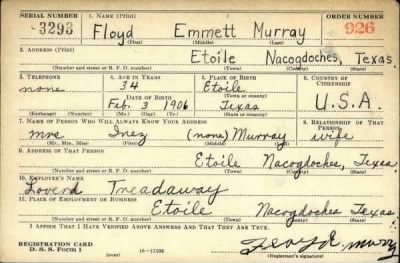 SERIAL NUMBER 1. NAME (Print) ORDER NUMBER
3293 Floyd Emmett Murray 926
(First) (Middle) (Last)
2. ADDRESS (Print)
Etoile Nacogdoches, Texas
(Number and street or R. F. D. number) (Town) (County) (State)
3. TELEPHONE 4. AGE IN YEARS 5. PLACE OF BIRTH 6. COUNTRY OF CITIZENSHIP
none 34 Etoile
DATE OF BIRTH (Town or county)
Feb. 3 1906 Texas U.S.A.
(Exchange) (Number) (Mo.) (Day) (Yr.) (State or country)
7. NAME OF PERSON WHO WILL ALWAYS KNOW YOUR ADDRESS 8. RELATIONSHIP OF THAT PERSON
mrs Inez (none) Murray wife
(Mr., Mrs., Miss) (First) (Middle) (Last)
9. ADDRESS OF THAT PERSON
Etoile Nacogdoches, Texas
(Number and street or R. F. D. number) (Town) (County) (State)
10. EMPLOYER'S NAME
Loverd Treadaway
11. PLACE OF EMPLOYMENT OR BUSINESS
Etoile Nacogdoches Texas
(Number and street or R. F. D. number) (Town) (County) (State)
I AFFIRM THAT I HAVE VERIFIED ABOVE ANSWERS AND THAT THEY ARE TRUE.
REGISTRATION CARD
D. S. S. Form 1 (over) 16—17105 Floyd E. Murray
(Registrant's signature)